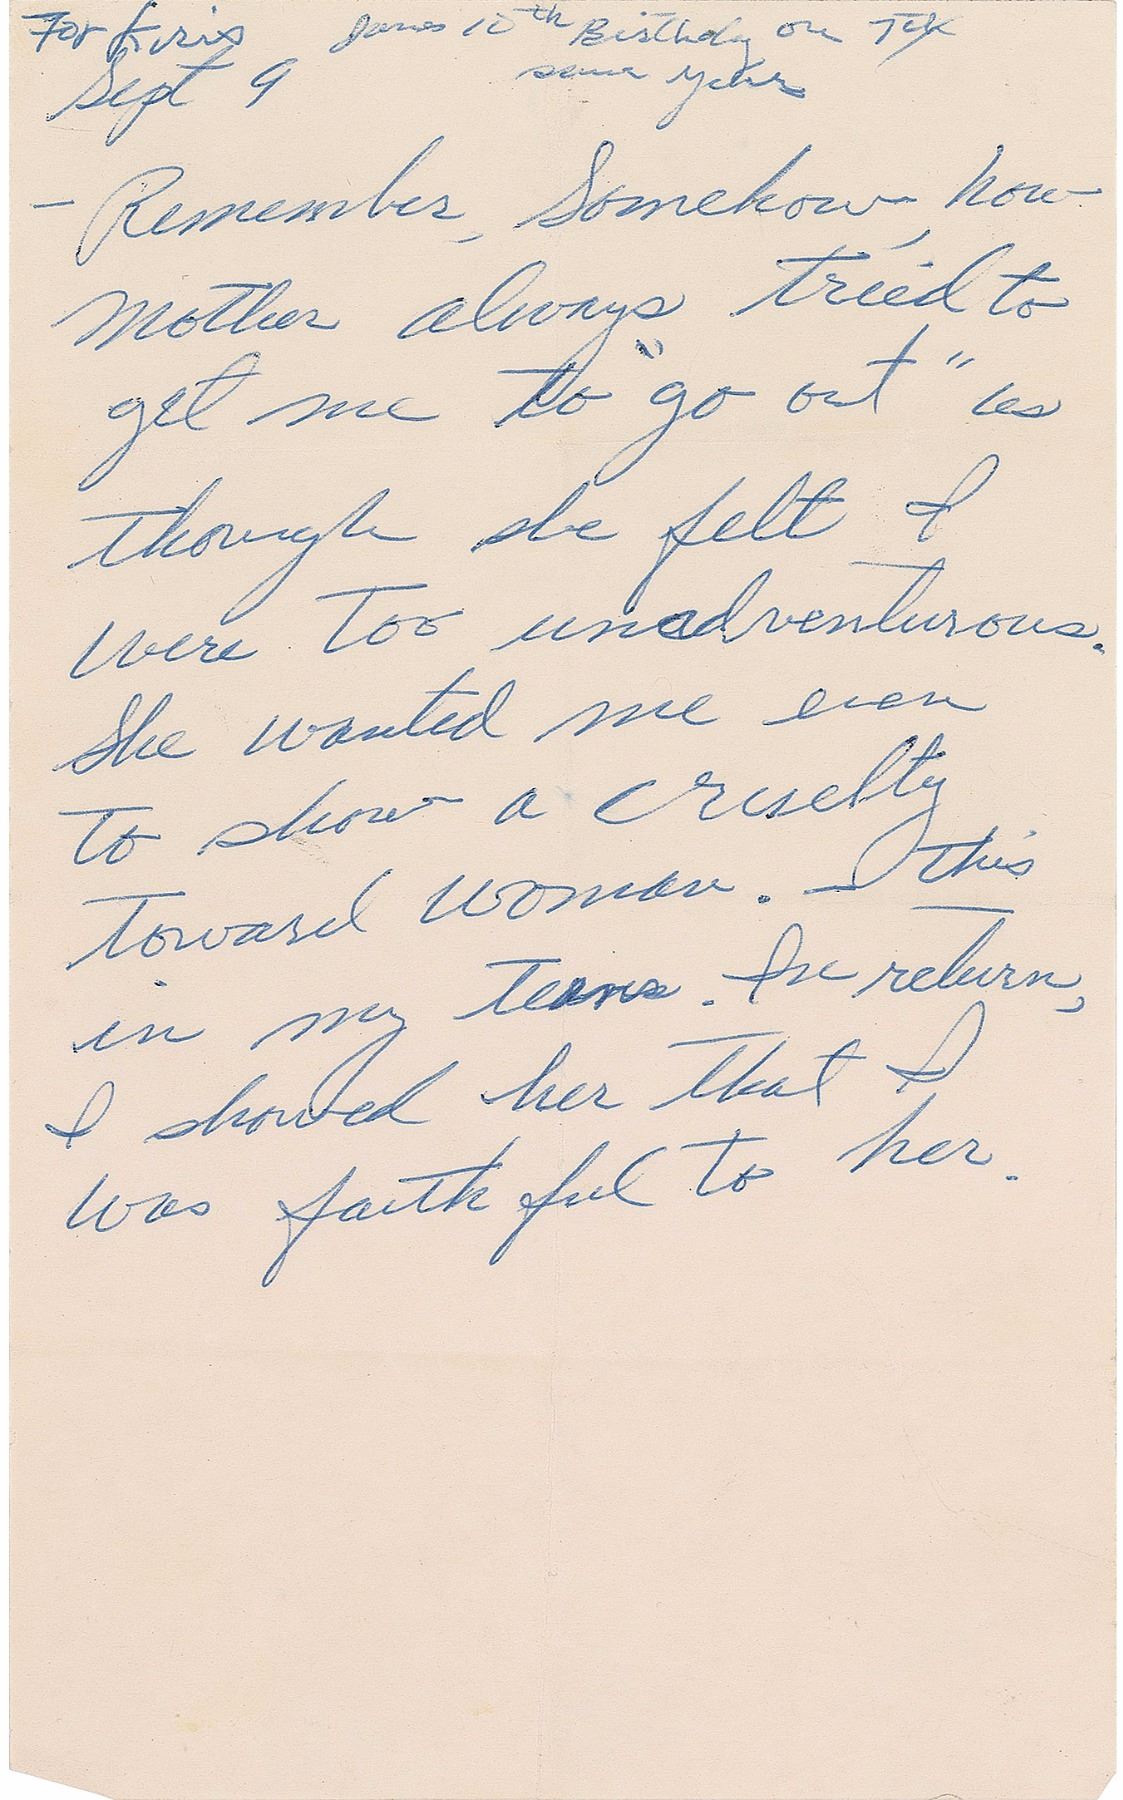 For Kris James 10th Birthday on TV
Sept 9 same year
- Remember, Somehow, how
mother always tried to
get me to "go out" as
though she felt I
were too unadventurous.
She wanted me even
to show a cruelty
toward woman. — This
in my teens. In return,
I showed her that I
was faithful to her.